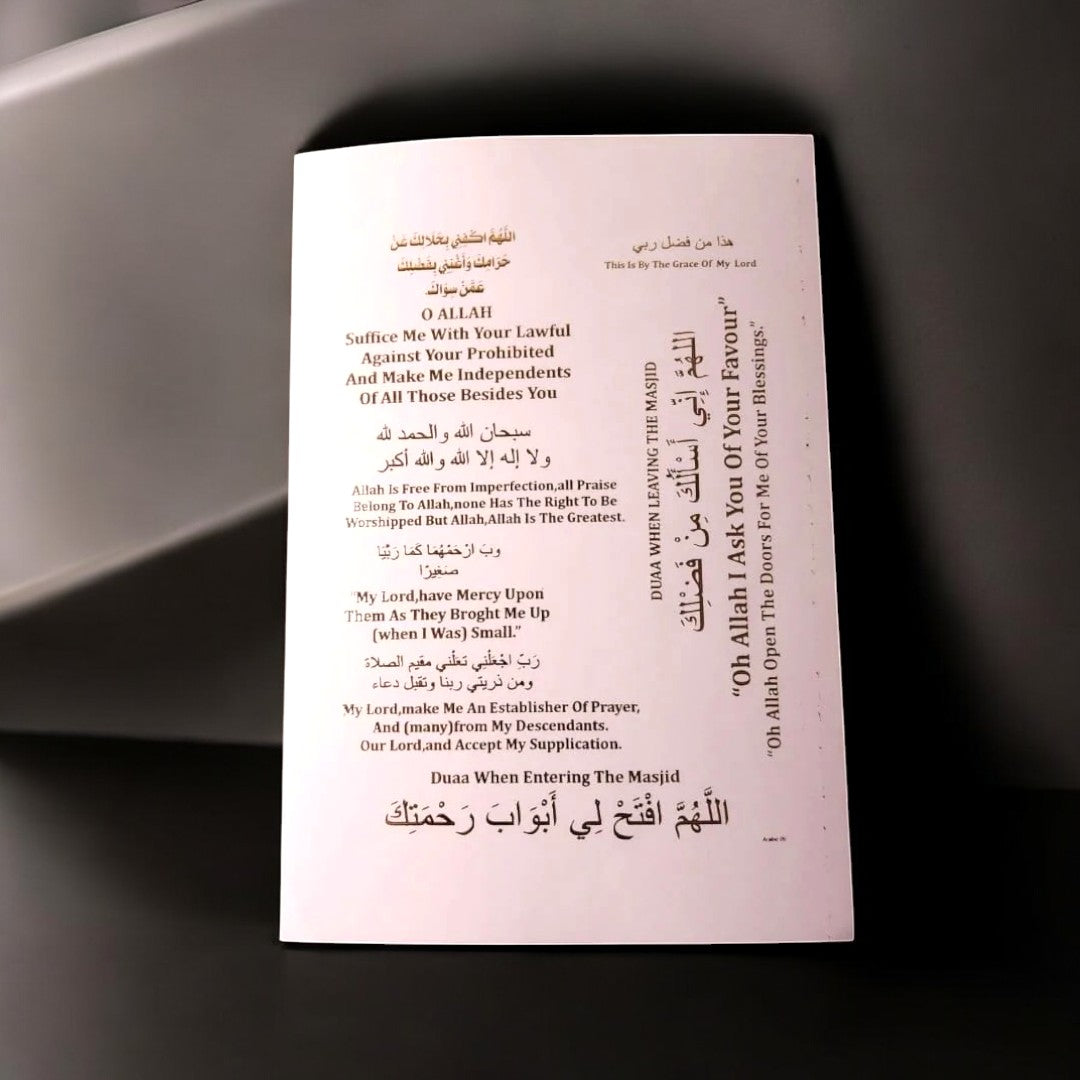 اللَّهُمَّ اكْفِنِي بِحَلَالِكَ عَنْ
حَرَامِكَ وَأَغْنِنِي بِفَضْلِكَ
عَمَّنْ سِوَاكَ.
O ALLAH
Suffice Me With Your Lawful
Against Your Prohibited
And Make Me Independents
Of All Those Besides You
سبحان الله والحمد لله
ولا إله إلا الله والله أكبر
Allah Is Free From Imperfection,all Praise
Belong To Allah,none Has The Right To Be
Worshipped But Allah,Allah Is The Greatest.
وبَ ارْحَمْهُمَا كَمَا رَبَّيَا
صَغِيرًا
"My Lord,have Mercy Upon
Them As They Broght Me Up
(when I Was) Small."
رَبِّ اجْعَلْنِي تعَلْني مقيم الصلاة
ومن ذريتي ربنا وتقبل دعاء
My Lord,make Me An Establisher Of Prayer,
And (many)from My Descendants.
Our Lord,and Accept My Supplication.
Duaa When Entering The Masjid
اللَّهُمَّ افْتَحْ لِي أَبْوَابَ رَحْمَتِكَ
هذا من فضل ربي
This Is By The Grace Of My Lord
DUAA WHEN LEAVING THE MASJID
اللهُمَّ إِنِّي أَسْأَلُكَ مِنْ فَضْلِكَ
"Oh Allah I Ask You Of Your Favour"
"Oh Allah Open The Doors For Me Of Your Blessings."